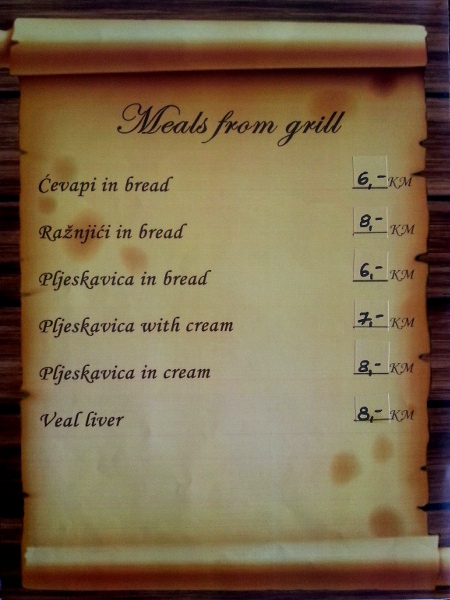 Meals from grill
Ćevapi in bread 6,- KM
Ražnjići in bread 8,- KM
Pljeskavica in bread 6,- KM
Pljeskavica with cream 7,- KM
Pljeskavica in cream 8,- KM
Veal liver 8,- KM